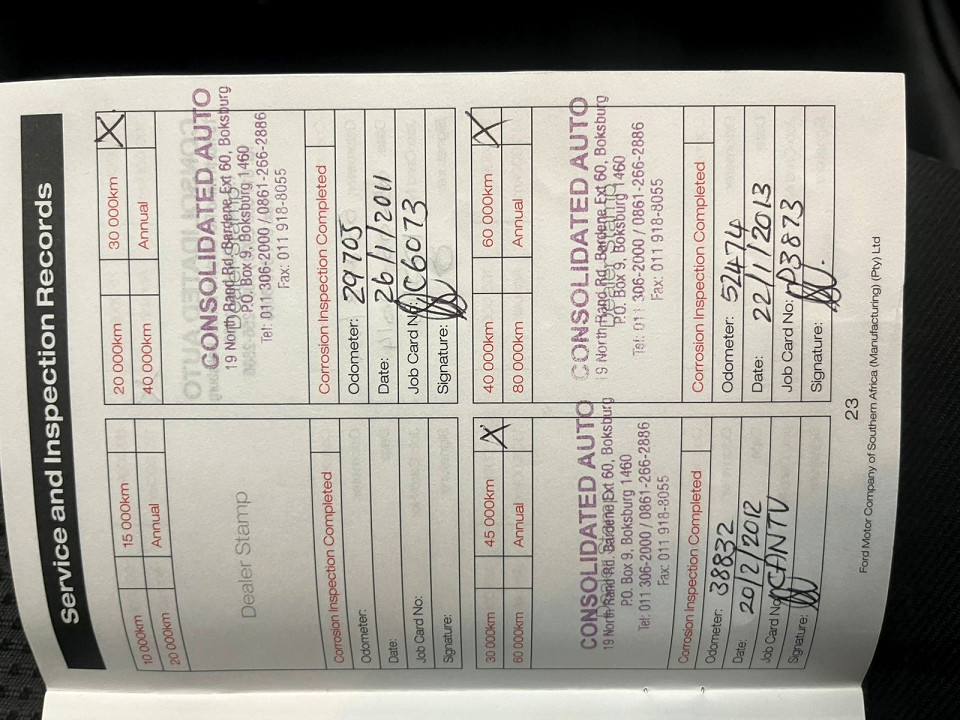 Service and Inspection Records
10 000km 15 000km
20 000km Annual
Dealer Stamp
Corrosion Inspection Completed
Odometer:
Date:
Job Card No:
Signature:
20 000km 30 000km X
40 000km Annual
CONSOLIDATED AUTO
19 North Rand Rd, Bardene Ext 60, Boksburg
P.O. Box 9, Boksburg 1460
Tel: 011 306-2000 / 0861-266-2886
Fax: 011 918-8055
Corrosion Inspection Completed
Odometer: 29705
Date: 26/1/2011
Job Card No: C6073
Signature:
30 000km 45 000km X
60 000km Annual
CONSOLIDATED AUTO
19 North Rand Rd, Bardene Ext 60, Boksburg
P.O. Box 9, Boksburg 1460
Tel: 011 306-2000 / 0861-266-2886
Fax: 011 918-8055
Corrosion Inspection Completed
Odometer: 38832
Date: 20/2/2012
Job Card No:
Signature:
40 000km 60 000km X
80 000km Annual
CONSOLIDATED AUTO
19 North Rand Rd, Bardene Ext 60, Boksburg
Dealer Stamp
P.O. Box 9, Boksburg 1460
Tel: 011 306-2000 / 0861-266-2886
Fax: 011 918-8055
Corrosion Inspection Completed
Odometer: 52474
Date: 22/1/2013
Job Card No: D3873
Signature:
23
Ford Motor Company of Southern Africa (Manufacturing) (Pty) Ltd